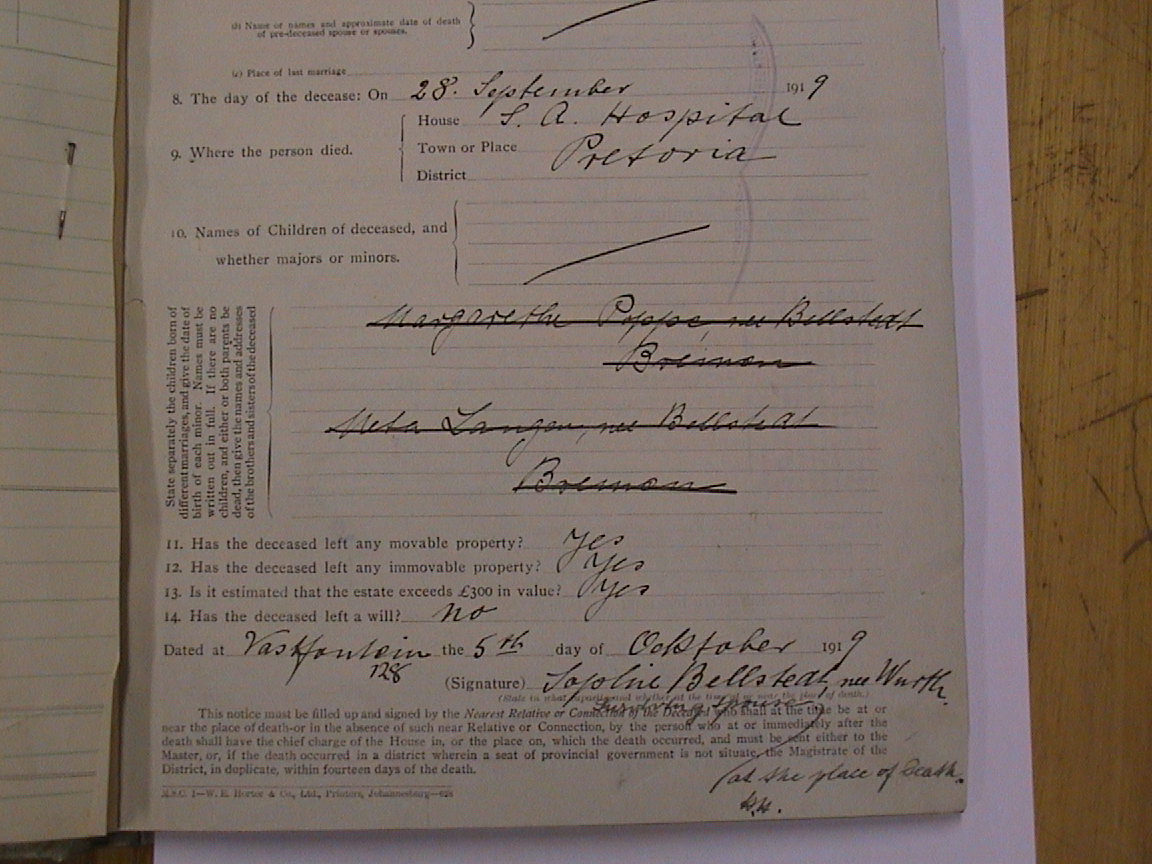 (b) Name or names and approximate date of death
of pre-deceased spouse or spouses.
(c) Place of last marriage
8. The day of the decease: On 28. September 1919
House S. A. Hospital
9. Where the person died.
Town or Place Pretoria
District
10. Names of Children of deceased, and
whether majors or minors.
State separately the children born of
different marriages, and give the date of
birth of each minor. Names must be
written out in full. If there are no
children, and either or both parents be
dead, then give the names and addresses
of the brothers and sisters of the deceased
Margarethe Poppe, nee Bellstedt
Bremen
Meta Langer, nee Bellstedt
Bremen
11. Has the deceased left any movable property? Yes
12. Has the deceased left any immovable property? Yes
13. Is it estimated that the estate exceeds £300 in value? Yes
14. Has the deceased left a will? no
Dated at Vastfontein the 5th day of Ocktober 1919
128
(Signature) Sophie Bellstedt, nee Wurth.
(State in what capacity and whether at the time at or near the place of death.)
Surviving spouse
This notice must be filled up and signed by the Nearest Relative or Connection of the Deceased who shall at the time be at or
near the place of death-or in the absence of such near Relative or Connection, by the person who at or immediately after the
death shall have the chief charge of the House in, or the place on, which the death occurred, and must be sent either to the
Master, or, if the death occurred in a district wherein a seat of provincial government is not situate, the Magistrate of the
District, in duplicate, within fourteen days of the death.
at the place of Death.
M.S.C. 1—W. E. Hortor & Co., Ltd., Printers, Johannesburg—